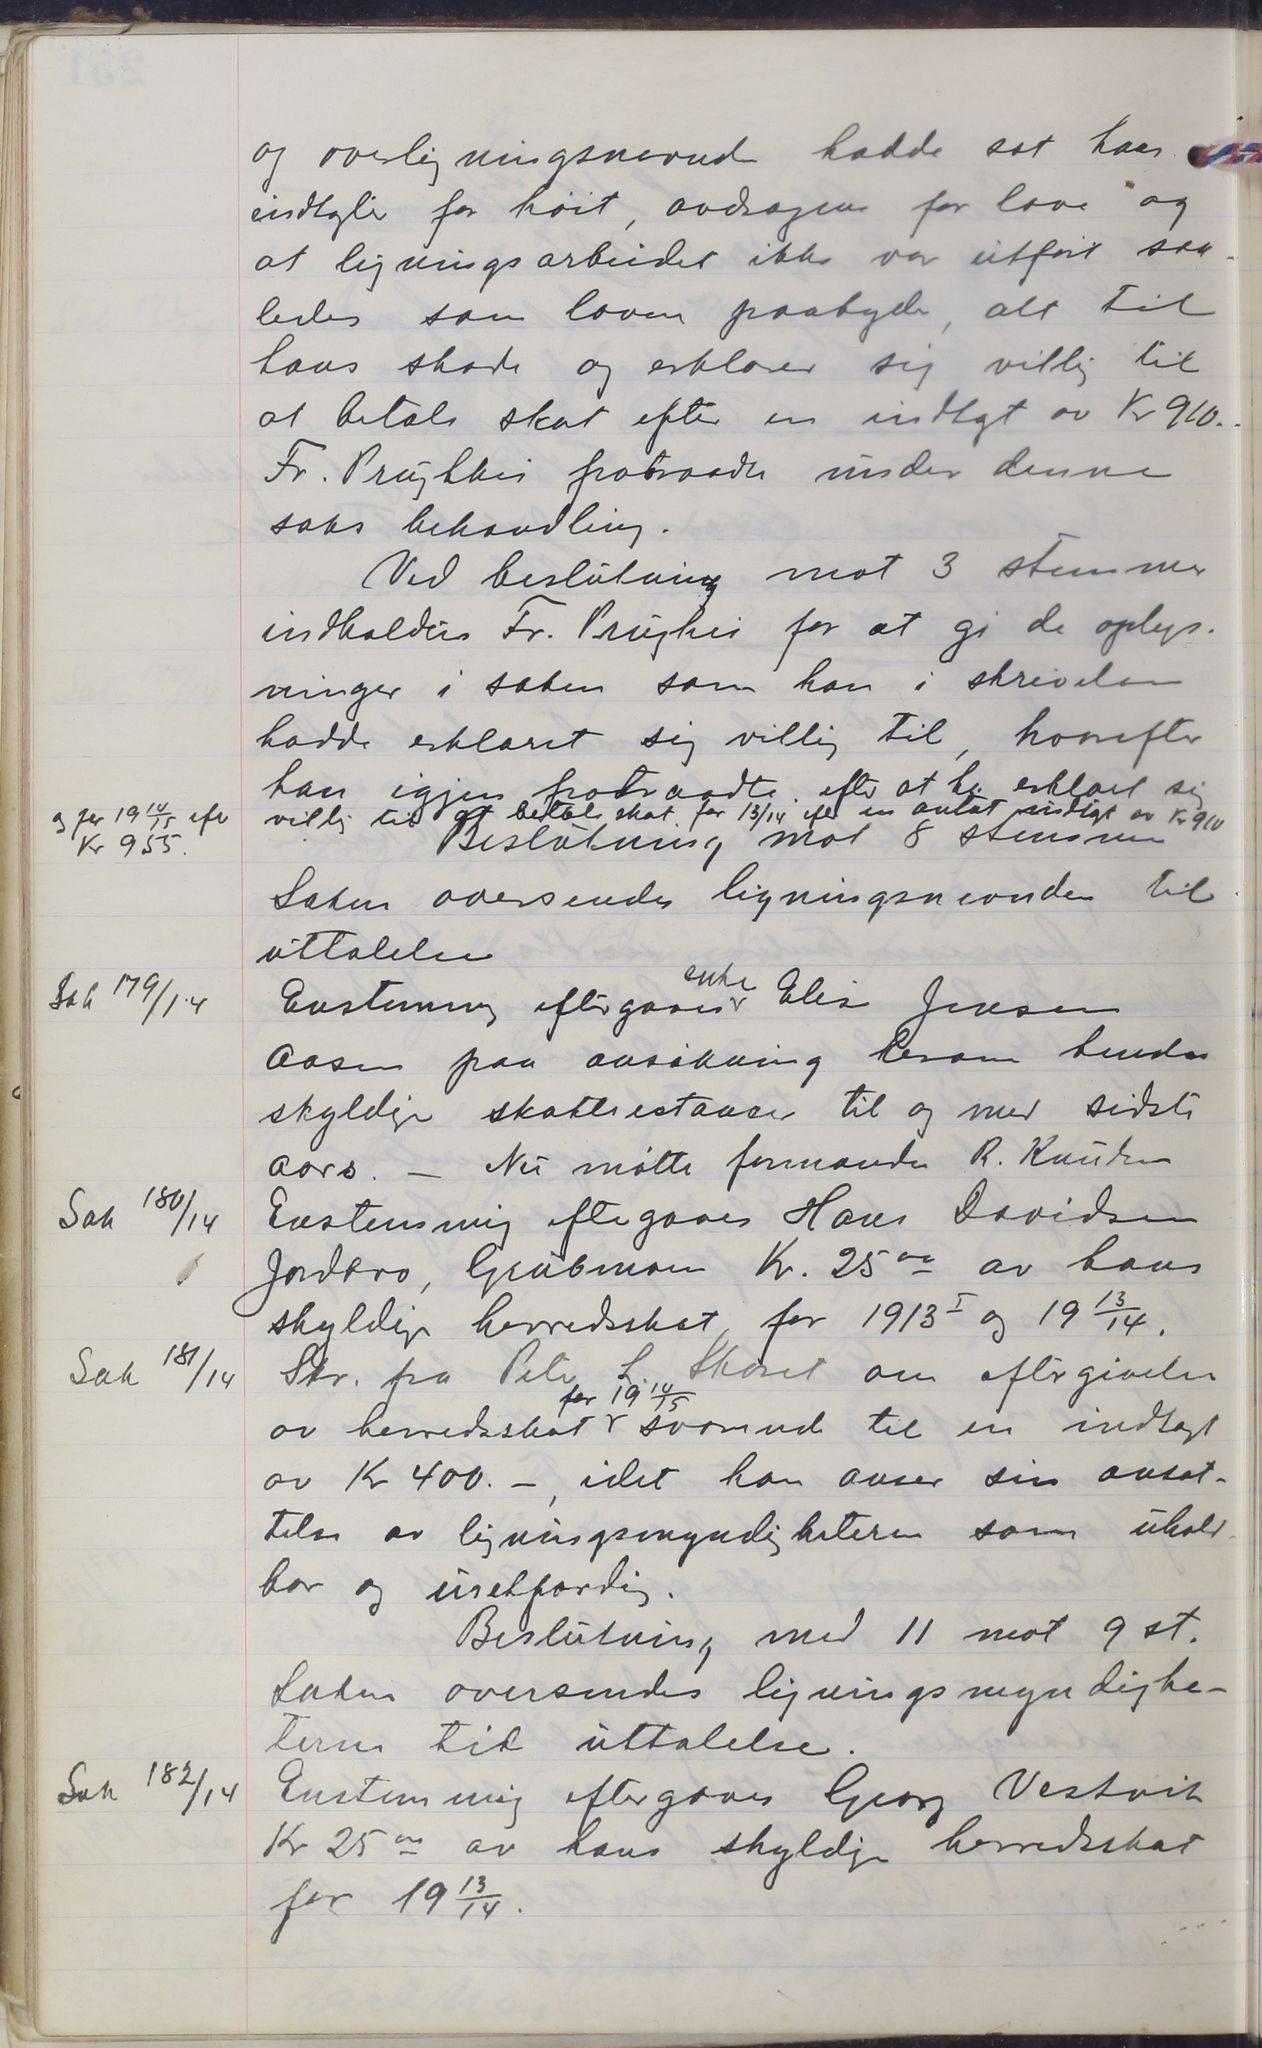 og overligningsnevnd hadde sat hans
indtægter for höit, avdragene for lave og
at ligningsarbeidet ikke var utfört saa-
ledes som loven paabyder, alt til
hans skade og erklærer sig villig til
at betale skat efter en indtægt av Kr 910.-
Fr. fratraadte under denne
saks behandling.
Ved beslutning mot 3 stemmer
indkaldtes Fr. for at gi de oplys-
ninger i saken som han i skrivelsen
hadde erklæret sig villig til, hvorefter
han igjen fratraadte. efter at ha erklæret sig
villig til at betale skat for 13/14 efter en antat indtægt av Kr 910
og for 19 14/15 efter
Kr 955.
Beslutning mot 8 stemmer
Saken oversendes ligningsnevnden til
uttalelse
Sak 179/14
Enstemmig eftergaves enke Elise Jensen
Aasen paa ansökning hendes
skyldige skatterestancer til og med sidste
aars. — Nu mötte formanden R. Knudsen
Sak 180/14
Enstemmig eftergaves Hans Davidsen
Jordbro, Grubmoen Kr. 25 00 av hans
skyldige herredsskat for 1913 I og 19 13/14.
Sak 181/14
Skr. fra Peter L. Skaret om eftergivelse
av herredsskat for 19 14/15 svarende til en indtægt
av Kr 400.-, idet han anser sin ansæt-
telse av ligningsmyndigheterne som uhold-
bar og uretfærdig.
Beslutning med 11 mot 9 st.
Saken oversendes ligningsmyndighe-
terne til uttalelse.
Sak 182/14
Enstemmig eftergaves Georg Vestvik
Kr 25 00 av hans skyldige herredsskat
for 19 13/14.